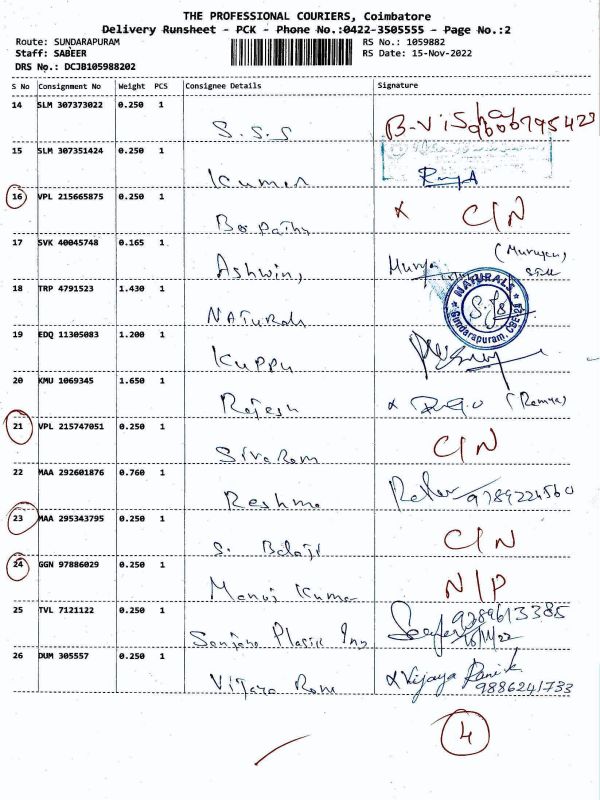 THE PROFESSIONAL COURIERS, Coimbatore
Delivery Runsheet - PCK - Phone No.:0422-3505555 - Page No.:2
Route: SUNDARAPURAM RS No.: 1059882
Staff: SABEER RS Date: 15-Nov-2022
DRS No.: DCJB105988202
S No Consignment No Weight PCS Consignee Details Signature
14 SLM 307373022 0.250 1
S.S.S B-Vishal
15 SLM 307351424 0.250 1
Kumar
16 VPL 215665875 0.250 1 x C/N
17 SVK 40045748 0.165 1
Ashwin, (Murugan)
18 TRP 4791523 1.430 1
Naturals NATURALS Sundarapuram, CBE
19 EDQ 11305083 1.200 1
Kuppu
20 KMU 1069345 1.650 1
Rajesh x (Ramya)
21 VPL 215747051 0.250 1 C/N
Sivaram
22 MAA 292601876 0.760 1
Reshma 9789224560
23 MAA 295343795 0.250 1 C/N
S. Balaji
24 GGN 97886029 0.250 1 N/P
Manoj Kumar
25 TVL 7121122 0.250 1 9789613385
Sanjana Plastic Ing
26 DUM 305557 0.250 1 x Vijaya
Vijaya Ram 9886241733
4